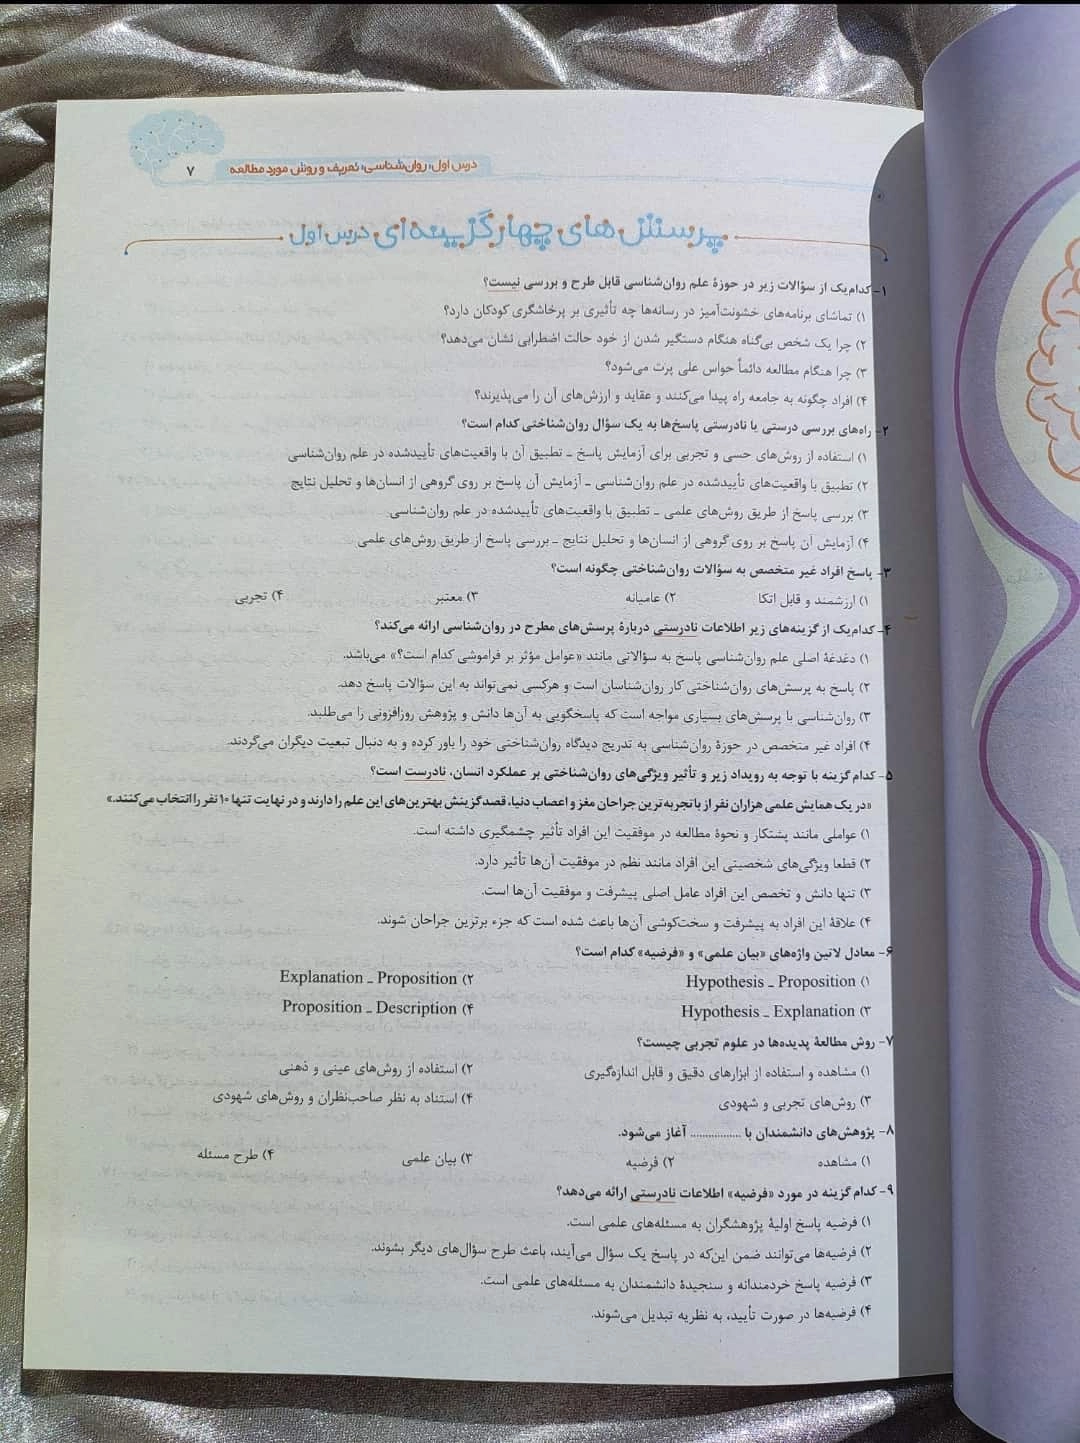 درس اول: روان‌شناسی؛ تعریف و روش مورد مطالعه ۷
پرسش‌های چهارگزینه‌ای درس اول
۱- کدام‌یک از سؤالات زیر در حوزهٔ علم روان‌شناسی قابل طرح و بررسی نیست؟
۱) تماشای برنامه‌های خشونت‌آمیز در رسانه‌ها چه تأثیری بر پرخاشگری کودکان دارد؟
۲) چرا یک شخص بی‌گناه هنگام دستگیر شدن از خود حالت اضطرابی نشان می‌دهد؟
۳) چرا هنگام مطالعه دائماً حواس علی پرت می‌شود؟
۴) افراد چگونه به جامعه راه پیدا می‌کنند و عقاید و ارزش‌های آن را می‌پذیرند؟
۲- راه‌های بررسی درستی یا نادرستی پاسخ‌ها به یک سؤال روان‌شناختی کدام است؟
۱) استفاده از روش‌های حسی و تجربی برای آزمایش پاسخ ـ تطبیق آن با واقعیت‌های تأییدشده در علم روان‌شناسی
۲) تطبیق با واقعیت‌های تأییدشده در علم روان‌شناسی ـ آزمایش آن پاسخ بر روی گروهی از انسان‌ها و تحلیل نتایج
۳) بررسی پاسخ از طریق روش‌های علمی ـ تطبیق با واقعیت‌های تأییدشده در علم روان‌شناسی
۴) آزمایش آن پاسخ بر روی گروهی از انسان‌ها و تحلیل نتایج ـ بررسی پاسخ از طریق روش‌های علمی
۳- پاسخ افراد غیر متخصص به سؤالات روان‌شناختی چگونه است؟
۱) ارزشمند و قابل اتکا ۲) عامیانه ۳) معتبر ۴) تجربی
۴- کدام‌یک از گزینه‌های زیر اطلاعات نادرستی دربارهٔ پرسش‌های مطرح در روان‌شناسی ارائه می‌کند؟
۱) دغدغهٔ اصلی علم روان‌شناسی پاسخ به سؤالاتی مانند «عوامل مؤثر بر فراموشی کدام است؟» می‌باشد.
۲) پاسخ به پرسش‌های روان‌شناختی کار روان‌شناسان است و هرکسی نمی‌تواند به این سؤالات پاسخ دهد.
۳) روان‌شناسی با پرسش‌های بسیاری مواجه است که پاسخگویی به آن‌ها دانش و پژوهش روزافزونی را می‌طلبد.
۴) افراد غیر متخصص در حوزهٔ روان‌شناسی به تدریج دیدگاه روان‌شناختی خود را باور کرده و به دنبال تبعیت دیگران می‌گردند.
۵- کدام گزینه با توجه به رویداد زیر و تأثیر ویژگی‌های روان‌شناختی بر عملکرد انسان، نادرست است؟
«در یک همایش علمی هزاران نفر از باتجربه‌ترین جراحان مغز و اعصاب دنیا، قصد گزینش بهترین‌های این علم را دارند و در نهایت تنها ۱۰ نفر را انتخاب می‌کنند.»
۱) عواملی مانند پشتکار و نحوهٔ مطالعه در موفقیت این افراد تأثیر چشمگیری داشته است.
۲) قطعا ویژگی‌های شخصیتی این افراد مانند نظم در موفقیت آن‌ها تأثیر دارد.
۳) تنها دانش و تخصص این افراد عامل اصلی پیشرفت و موفقیت آن‌ها است.
۴) علاقهٔ این افراد به پیشرفت و سخت‌کوشی آن‌ها باعث شده است که جزء برترین جراحان شوند.
۶- معادل لاتین واژه‌های «بیان علمی» و «فرضیه» کدام است؟
۱) Hypothesis ـ Proposition ۲) Explanation ـ Proposition
۳) Hypothesis ـ Explanation ۴) Proposition ـ Description
۷- روش مطالعهٔ پدیده‌ها در علوم تجربی چیست؟
۱) مشاهده و استفاده از ابزارهای دقیق و قابل اندازه‌گیری ۲) استفاده از روش‌های عینی و ذهنی
۳) روش‌های تجربی و شهودی ۴) استناد به نظر صاحب‌نظران و روش‌های شهودی
۸- پژوهش‌های دانشمندان با ................ آغاز می‌شود.
۱) مشاهده ۲) فرضیه ۳) بیان علمی ۴) طرح مسئله
۹- کدام گزینه در مورد «فرضیه» اطلاعات نادرستی ارائه می‌دهد؟
۱) فرضیه پاسخ اولیهٔ پژوهشگران به مسئله‌های علمی است.
۲) فرضیه‌ها می‌توانند ضمن این‌که در پاسخ یک سؤال می‌آیند، باعث طرح سؤال‌های دیگر بشوند.
۳) فرضیه پاسخ خردمندانه و سنجیدهٔ دانشمندان به مسئله‌های علمی است.
۴) فرضیه‌ها در صورت تأیید، به نظریه تبدیل می‌شوند.